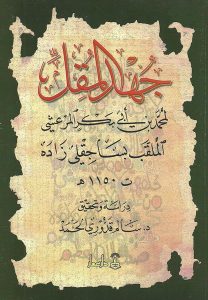 جهد المقل
لمحمد بن أبي بكر المرعشي
الملقب بساجقلي زاده
ت ١١٥٠ هـ
دراسة وتحقيق
د. سالم قدوري الحمد
دار عمار